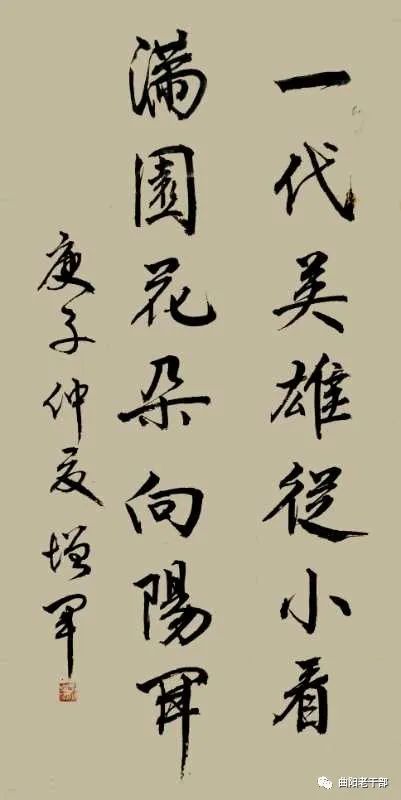 一代英雄從小看
滿園花朵向陽開
庚子仲夏增軍
曲阳老干部